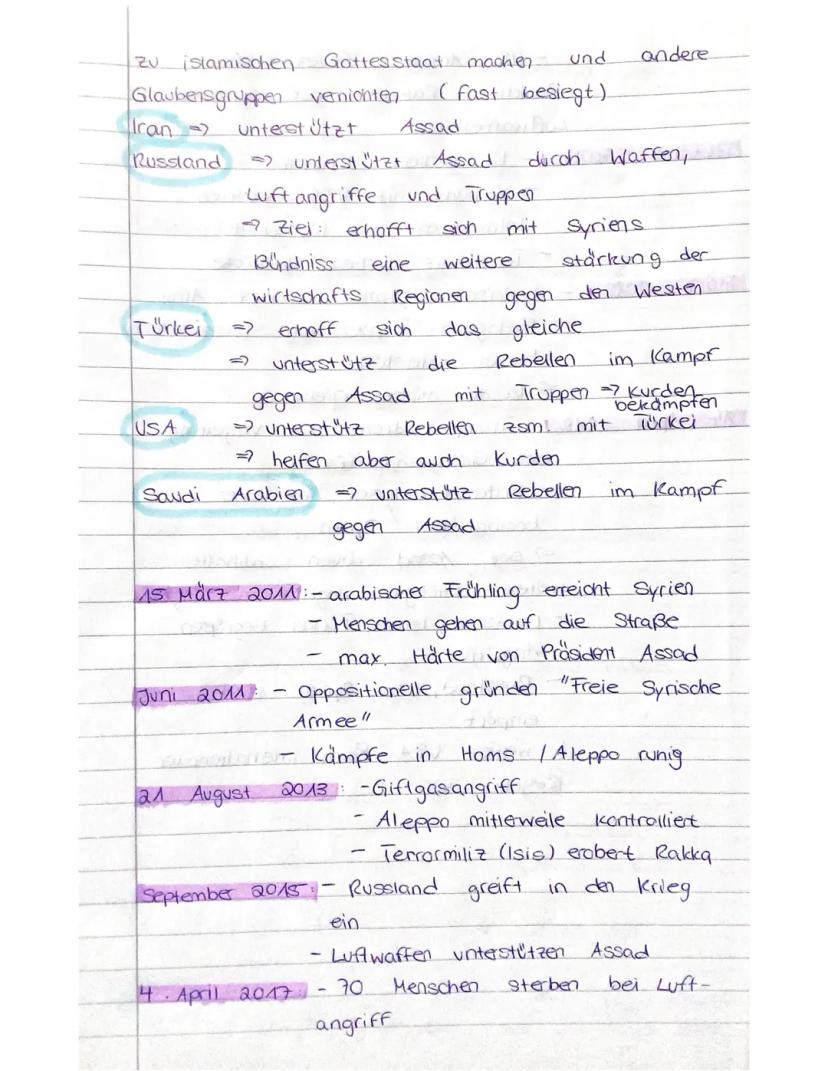 zu islamischen Gottesstaat machen und andere
Glaubensgruppen vernichten (fast besiegt)
Iran => unterstützt Assad
Russland => unterstützt Assad durch Waffen,
Luftangriffe und Truppen
→ Ziel: erhofft sich mit Syriens
Bündniss eine weitere stärkung der
wirtschafts Regionen gegen den Westen
Türkei => erhoff sich das gleiche
=> unterstütz die Rebellen im Kampf
gegen Assad mit Truppen => Kurden
bekämpfen
USA => unterstütz Rebellen zsm. mit Türkei
=> helfen aber auch Kurden
Saudi Arabien => unterstütz Rebellen im Kampf
gegen Assad
15 März 2011: - arabischer Frühling erreicht Syrien
- Menschen gehen auf die Straße
- max. Härte von Präsident Assad
Juni 2011: - Oppositionelle gründen "Freie Syrische
Armee"
- Kämpfe in Homs / Aleppo ruhig
21 August 2013: - Giftgasangriff
- Aleppo mitleweile kontrolliert
- Terrormiliz (Isis) erobert Rakka
September 2015: - Russland greift in den Krieg
ein
- Luftwaffen unterstützen Assad
4. April 2017: - 70 Menschen sterben bei Luft-
angriff